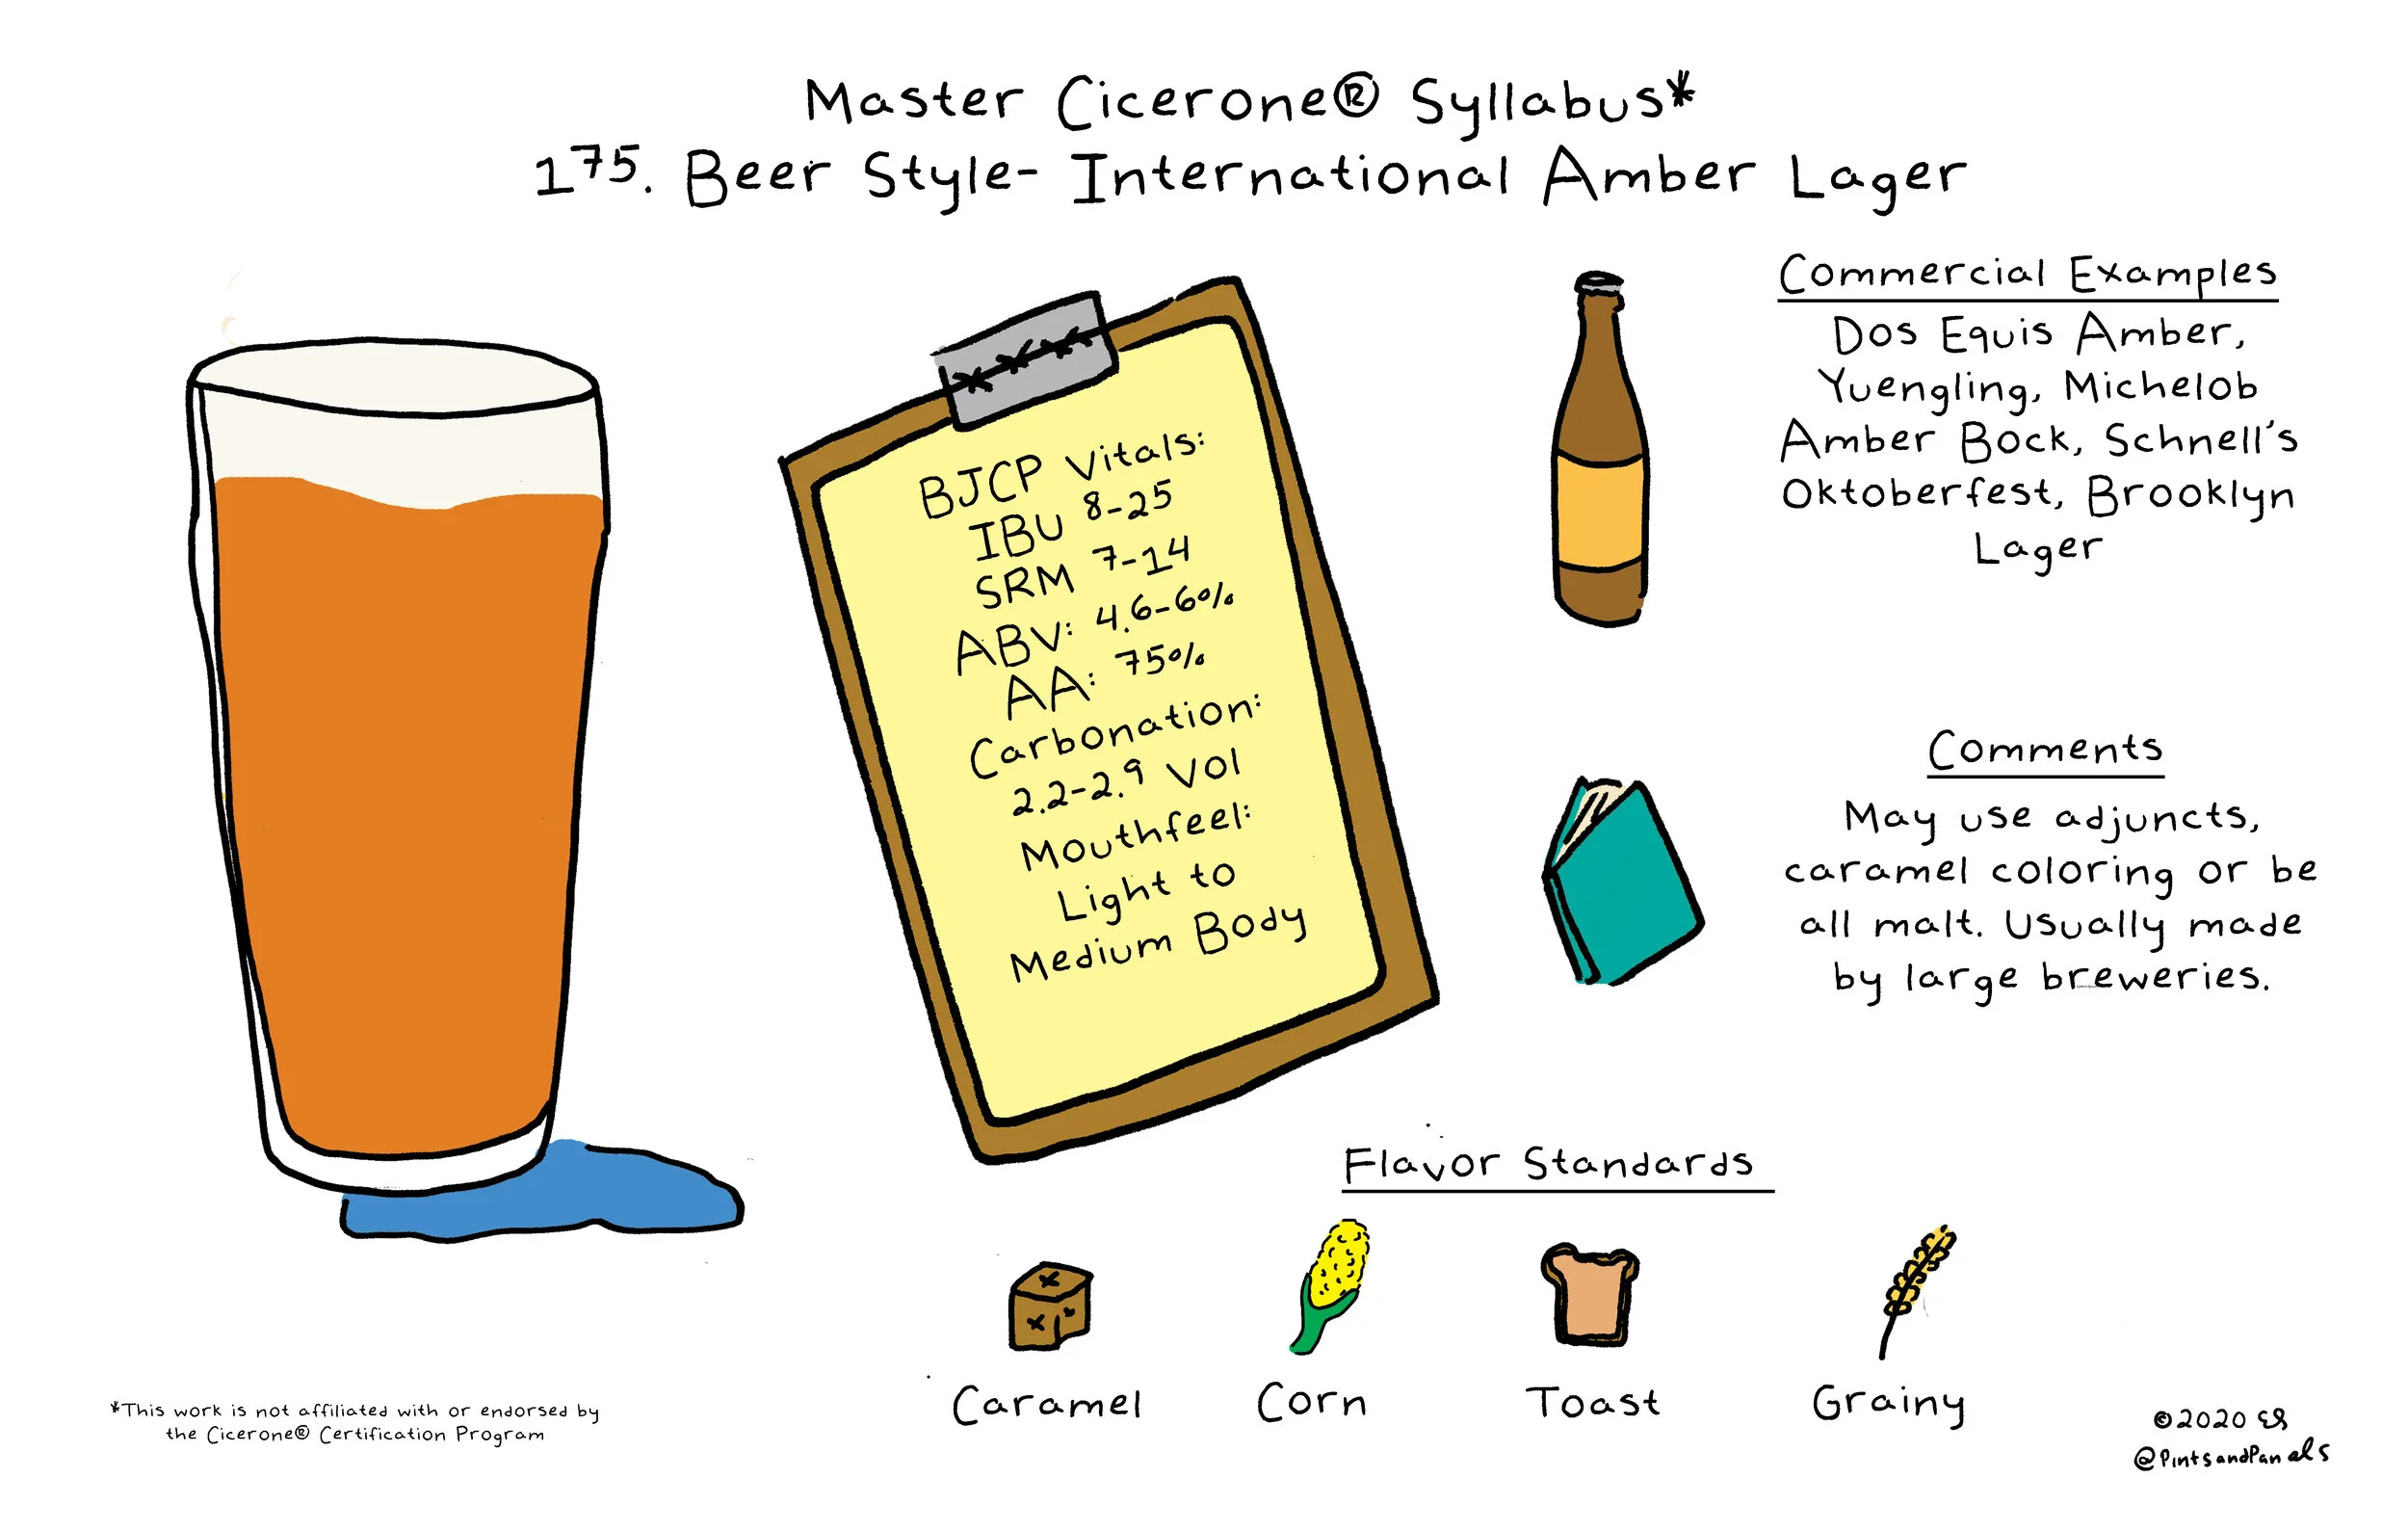 Master Cicerone® Syllabus*
175. Beer Style- International Amber Lager
BJCP Vitals:
IBU 8-25
SRM 7-14
ABV: 4.6-6%
AA: 75%
Carbonation:
2.2-2.9 Vol
Mouthfeel:
Light to
Medium Body
Commercial Examples
Dos Equis Amber,
Yuengling, Michelob
Amber Bock, Schnell's
Oktoberfest, Brooklyn
Lager
Comments
May use adjuncts,
caramel coloring or be
all malt. Usually made
by large breweries.
Flavor Standards
Caramel
Corn
Toast
Grainy
*This work is not affiliated with or endorsed by
the Cicerone® Certification Program
©2020 ES
@PintsandPanels